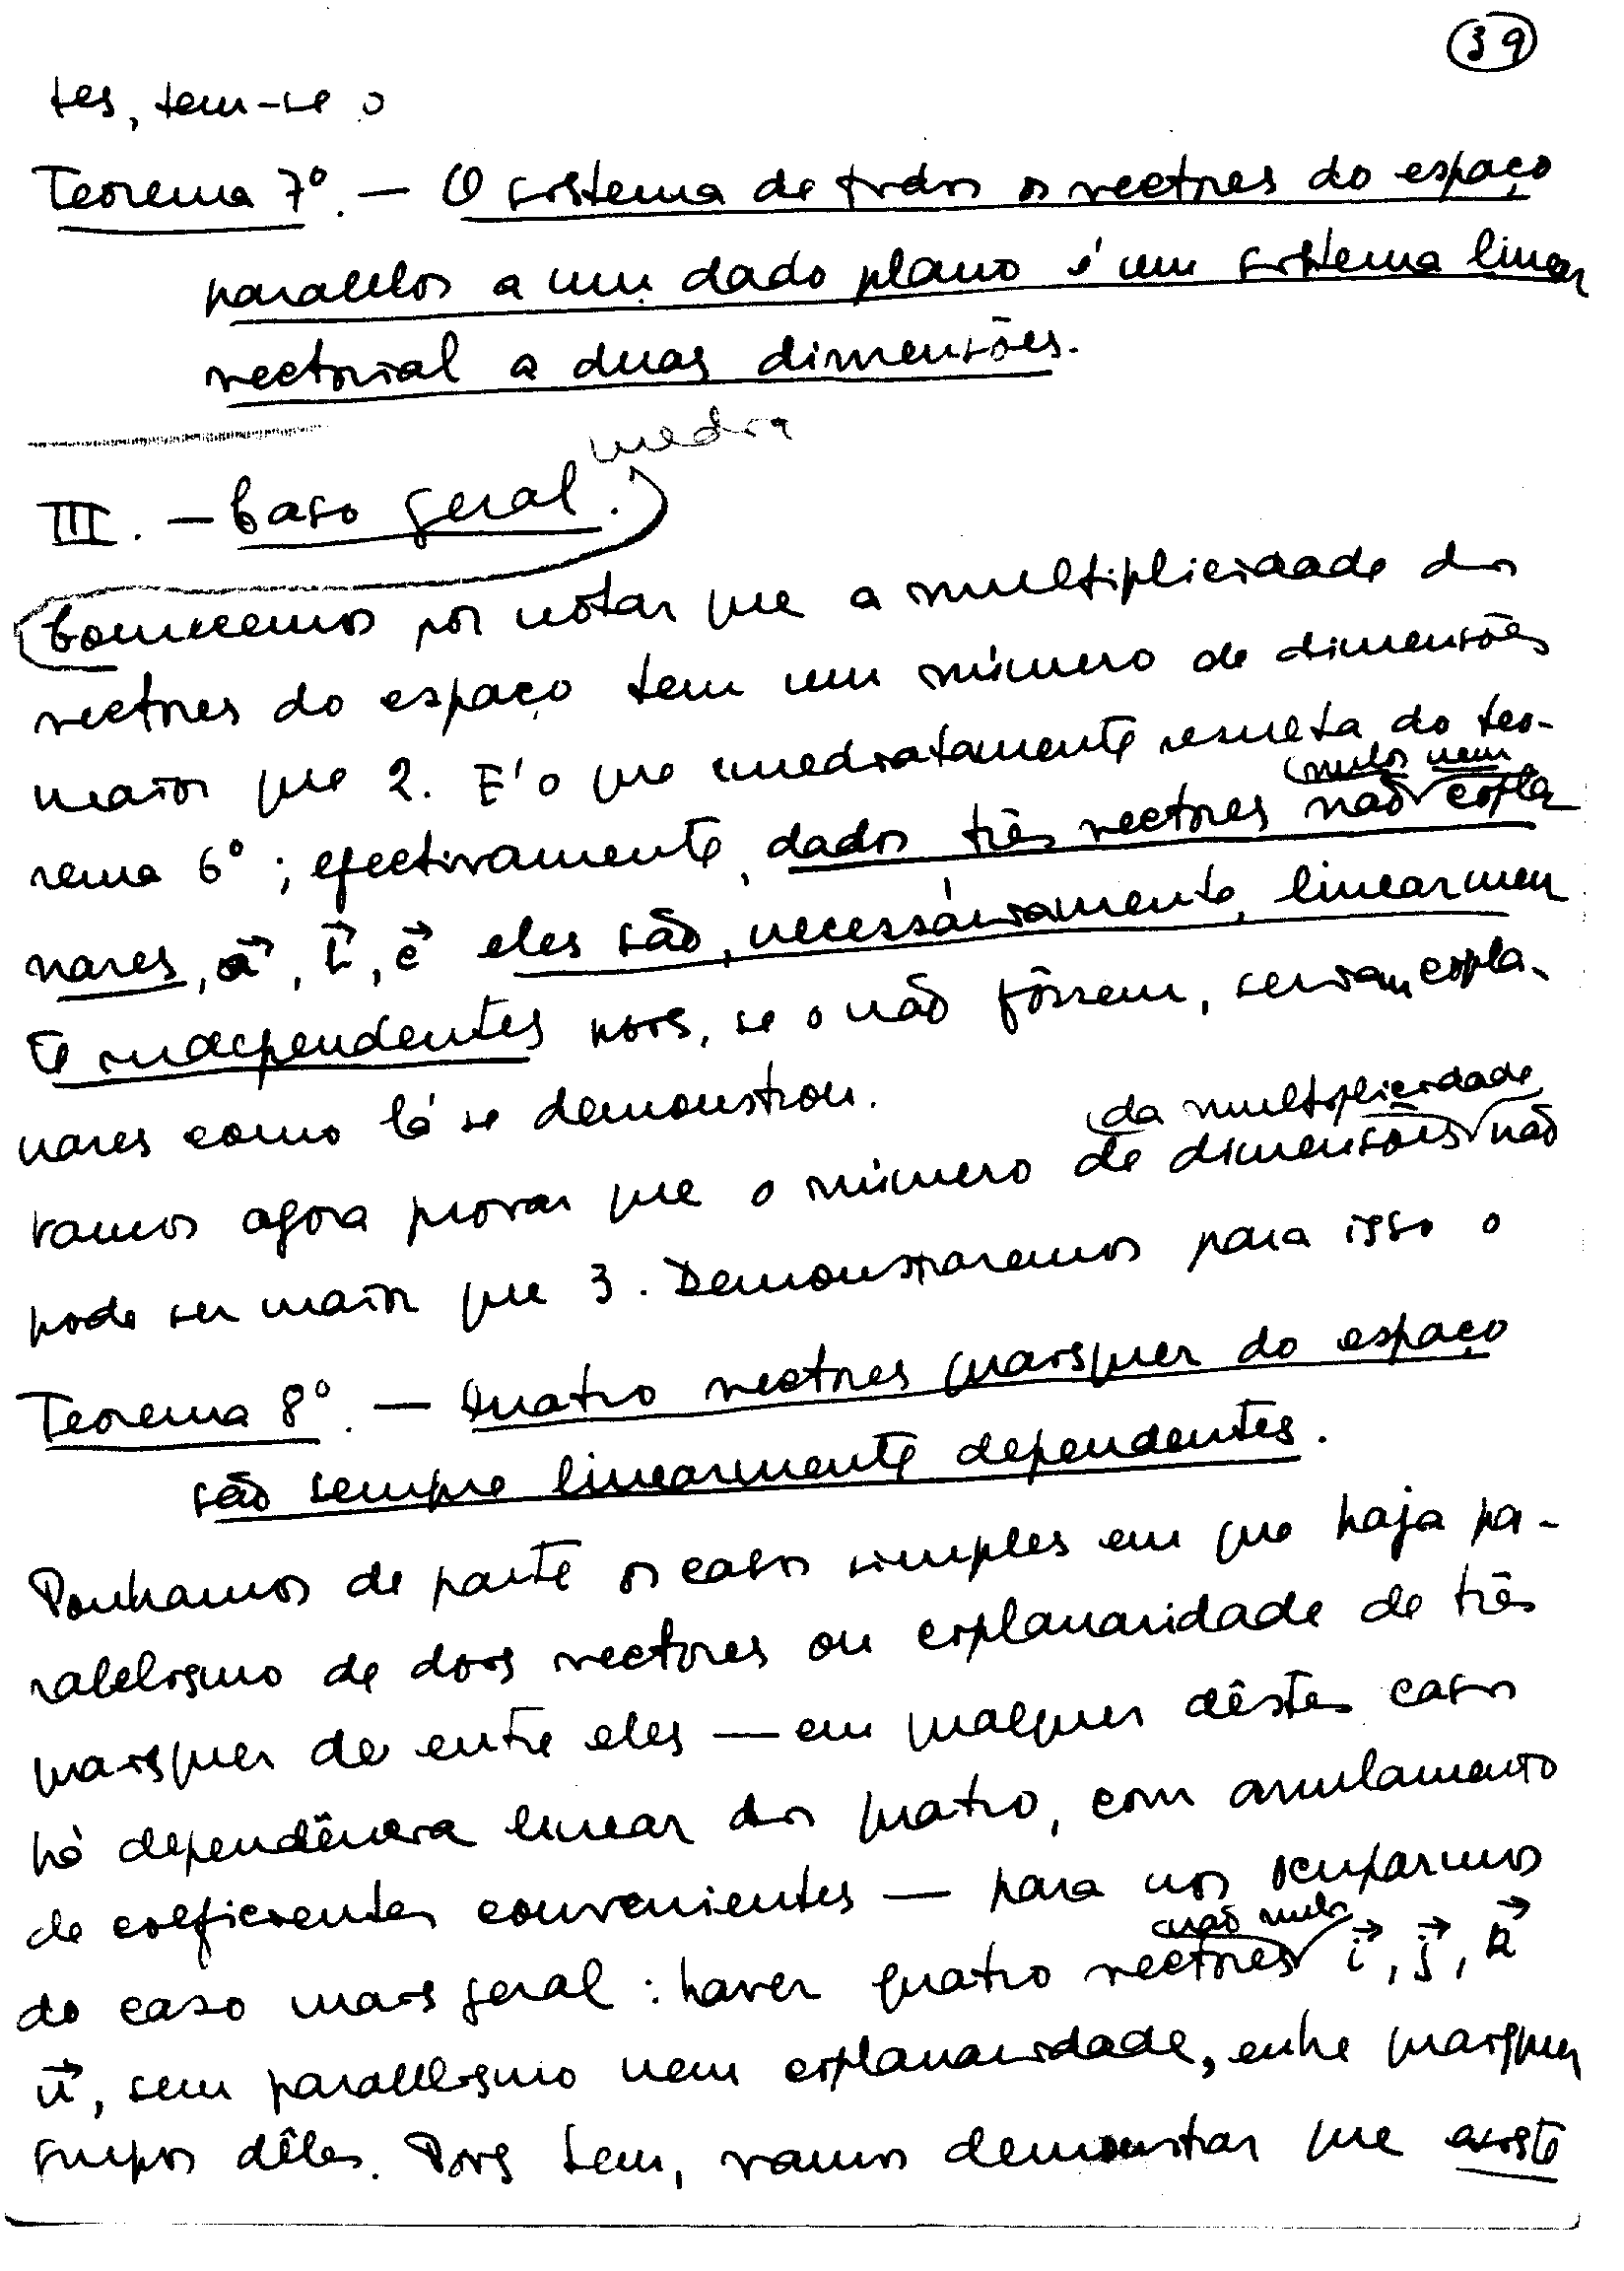 39
tes, tem-se o
Teorema 7º. — O sistema de todos os vectores do espaço
paralelos a um dado plano é um sistema linear
vectorial a duas dimensões.
media
III. — Caso geral.
Comecemos por notar que a multiplicidade dos
vectores do espaço tem um número de dimensões
maior que 2. E' o que imediatamente resulta do teo-
nulos nem
rema 6º; efectivamente, dados três vectores não copla
nares, a⃗, b⃗, c⃗ eles são, necessáriamente, linearmen
te independentes pois, se o não fôssem, seriam copla-
nares como lá se demonstrou.
da multiplicidade
Vamos agora provar que o número de dimensões não
pode ser maior que 3. Demonstraremos para isso o
Teorema 8º. — Quatro vectores quaisquer do espaço
são sempre linearmente dependentes.
Ponhamos de parte os casos simples em que haja pa-
ralelismo de dois vectores ou coplanaridade de três
quaisquer de entre eles — em qualquer dêstes casos
há dependência linear dos quatro, com anulamento
de coeficientes convenientes — para nos ocuparmos
não nulos
do caso mais geral: haver quatro vectores i⃗, j⃗, k⃗
u⃗, sem paralelismo nem coplanaridade, entre quaisquer
grupos dêles. Pois bem, vamos demonstrar que existe